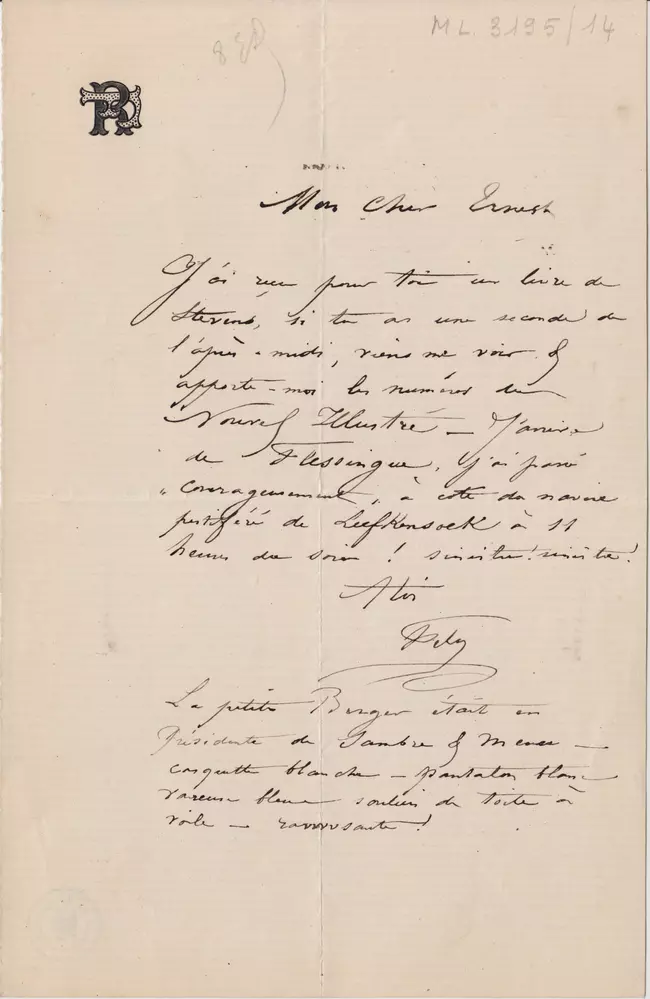 ML. 3195/14
Mon cher Ernest
J'ai reçu pour toi un livre de
Stevens, si tu as une seconde de
l'après-midi, viens me voir &
apporte-moi les numéros du
Nouvel Illustré – J'arrive
de Flessingue, j'ai passé
"courageusement" à côté du navire
pestiféré de Leefkensoek à 11
heures du soir ! sinistre! sinistre!
A toi
Fély
La petite Berger était en
Présidente de Sambre & Meuse –
casquette blanche – pantalon blanc
vareuse bleue souliers de toile à
voile –